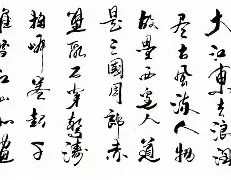 大江東去浪淘
尽古風流人物
故壘西邊人道
是三國周郎赤
壁亂石穿驚濤
拍岸卷起千
堆雪江山如畫